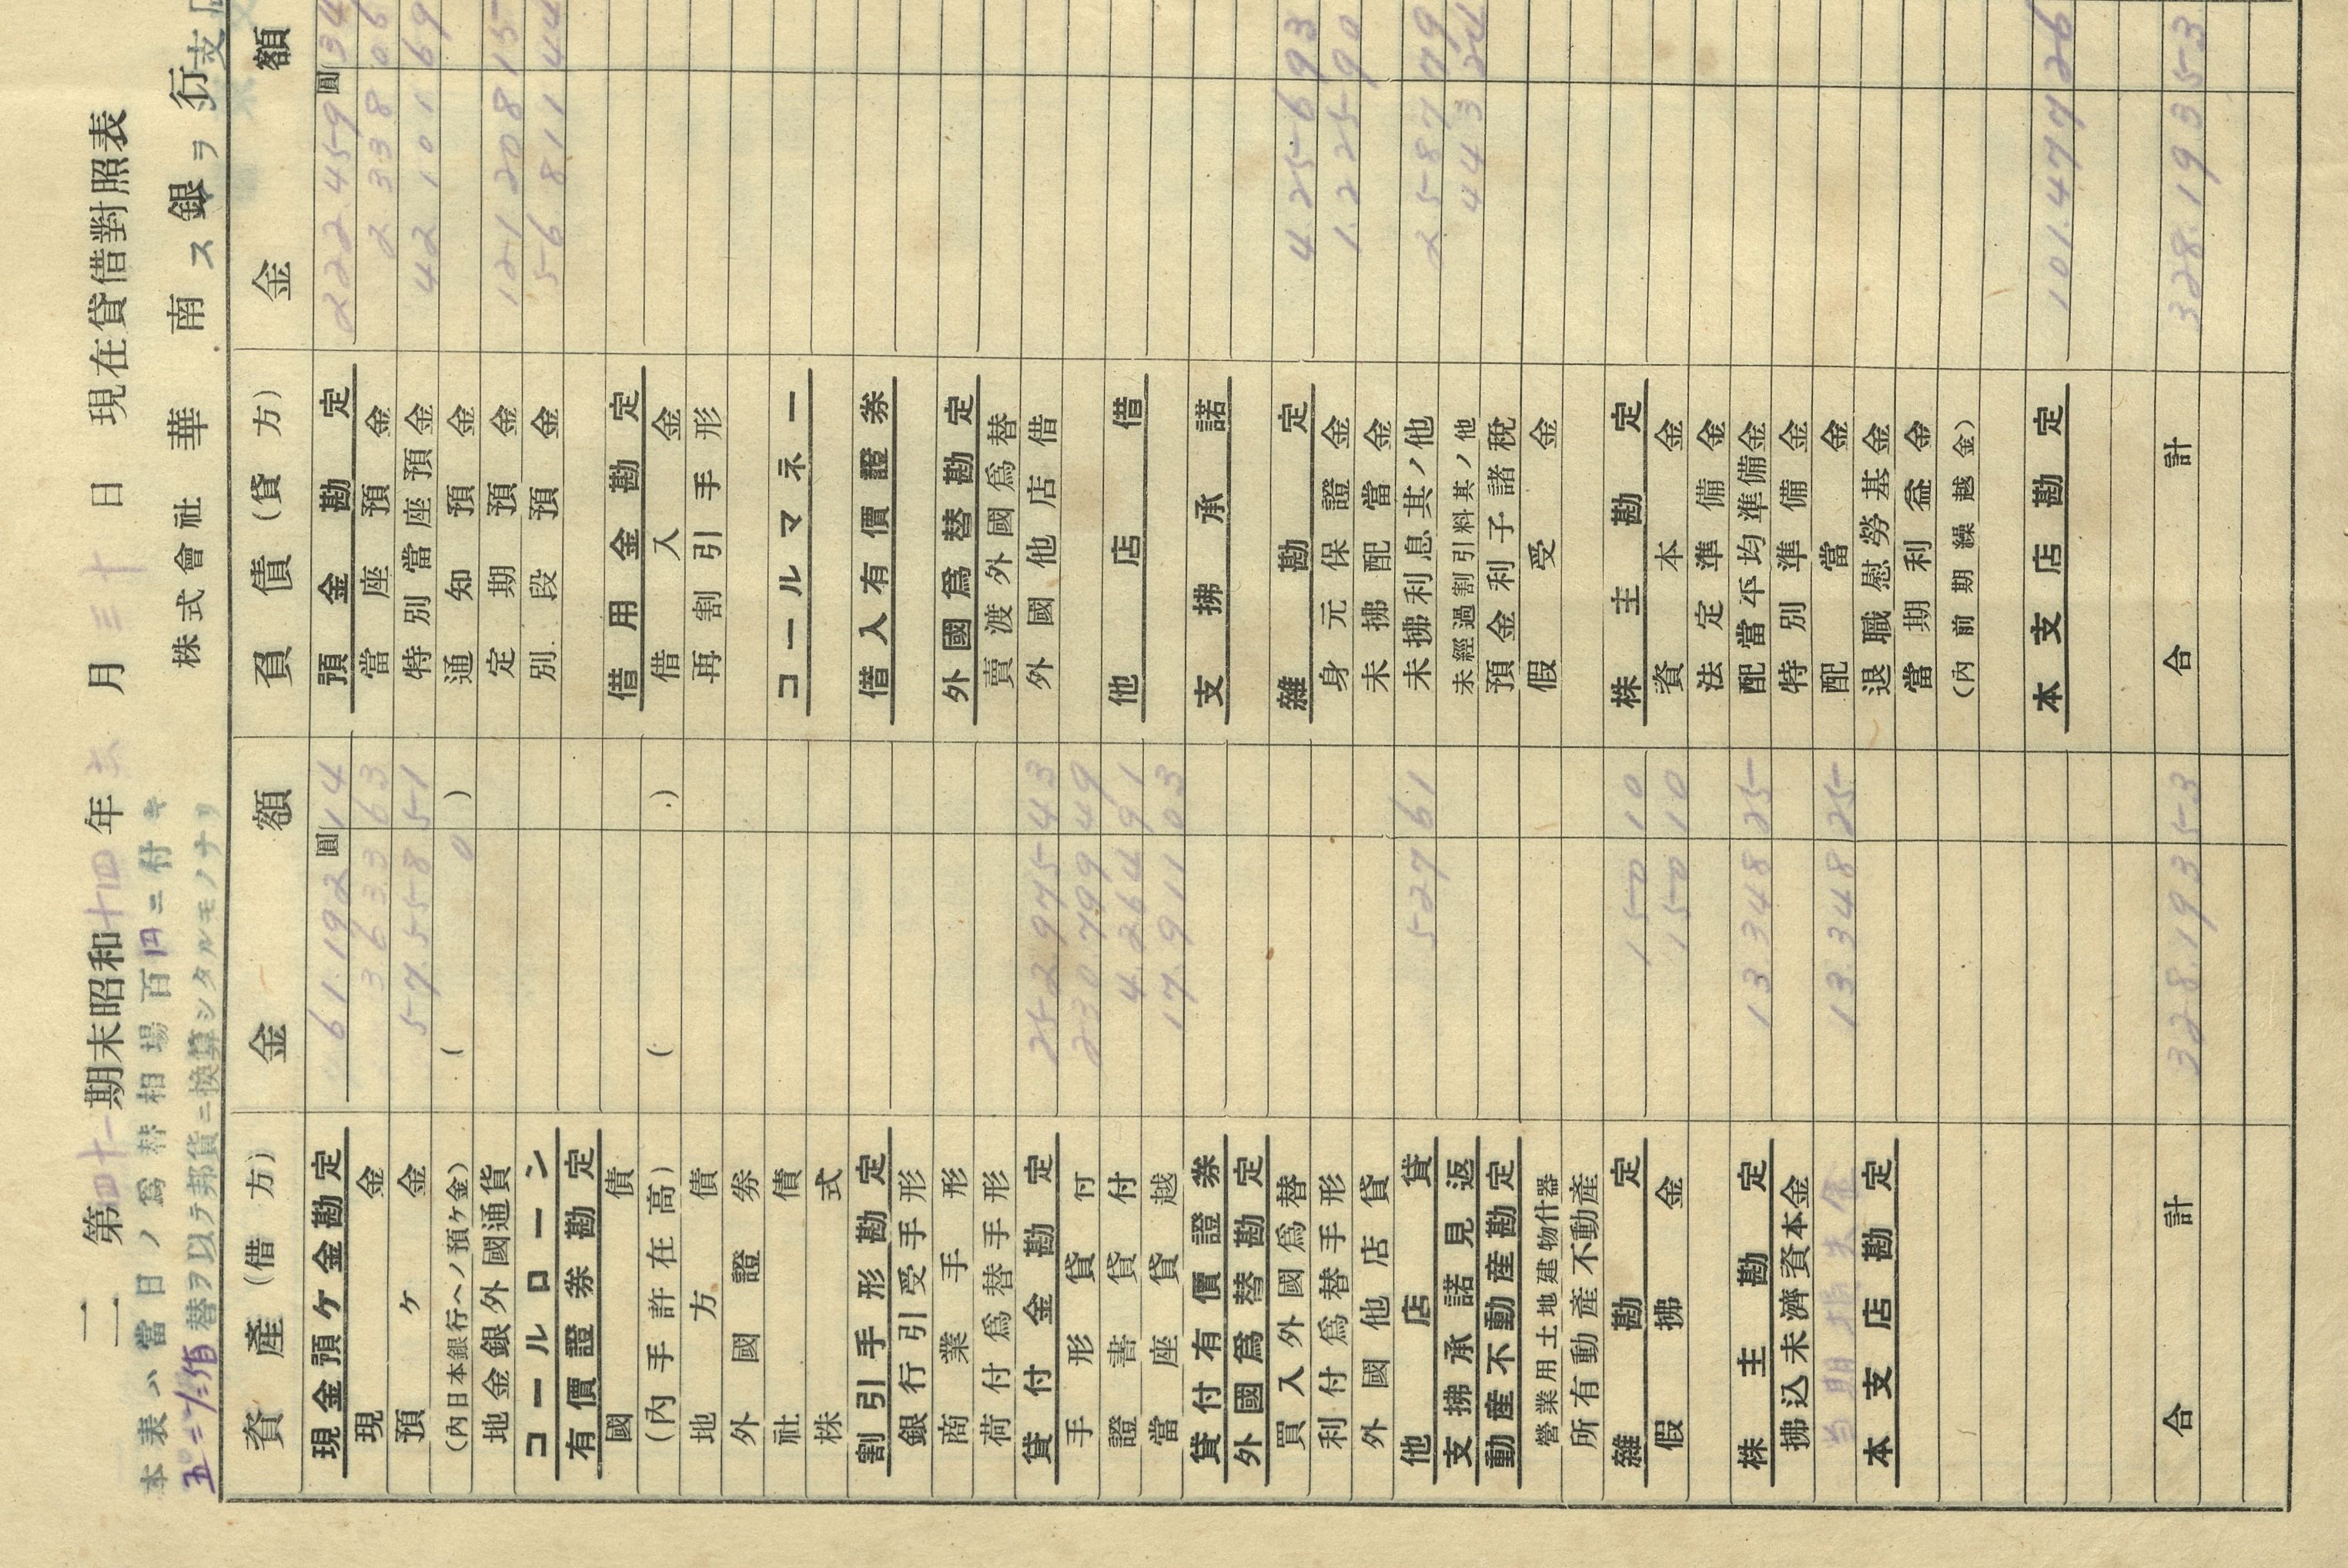 二 第四十一期末昭和十四年六月三十日 現在貸借對照表
本表ハ當日ノ為替相場百円ニ付キ
替ヲ以テ邦貨ニ換算シタルモノナリ
株式會社 華南銀行 支
資産(借方) 金額
現金預ケ金勘定 61.192 圓 14
現金 3 633 63
預ケ金 57.558 51
(內日本銀行ヘノ預ケ金) ( 0 )
地金銀外國通貨
コールローン
有價證券勘定
國債
(內手許在高) ( )
地方債
外國證券
社債
株式
割引手形勘定
銀行引受手形
商業手形
荷付為替手形
貸付金勘定 252.975 43
手形貸付 230.799 49
證書貸付 4.264 91
當座貸越 17.911 03
貸付有價證券
外國為替勘定
買入外國為替
利付為替手形
外國他店貸
他店貸 527 61
支拂承諾見返
動産不動産勘定
營業用土地建物什器
所有動産不動産
雜勘定 150 10
假拂金 150 10
株主勘定 13.348 25
拂込未濟資本金
当期損失金 13.348 25
本支店勘定
合計 328.193 53
負債(貸方) 金額
預金勘定 222.459 圓 34
當座預金 2 338 06
特別當座預金 42 101 69
通知預金
定期預金 121 208 15
別段預金 56 811 44
借用金勘定
借入金
再割引手形
コールマネー
借入有價證券
外國為替勘定
賣渡外國為替
外國他店借
他店借
支拂承諾
雜勘定 4.256 93
身元保證金 1.225 90
未拂配當金
未拂利息其ノ他 2587 79
未經過割引料其ノ他 443 24
預金利子諸税
假受金
株主勘定
資本金
法定準備金
配當平均準備金
特別準備金
配當金
退職慰勞基金
當期利益金
(內前期繰越金)
本支店勘定 101.477 26
合計 328.193 53